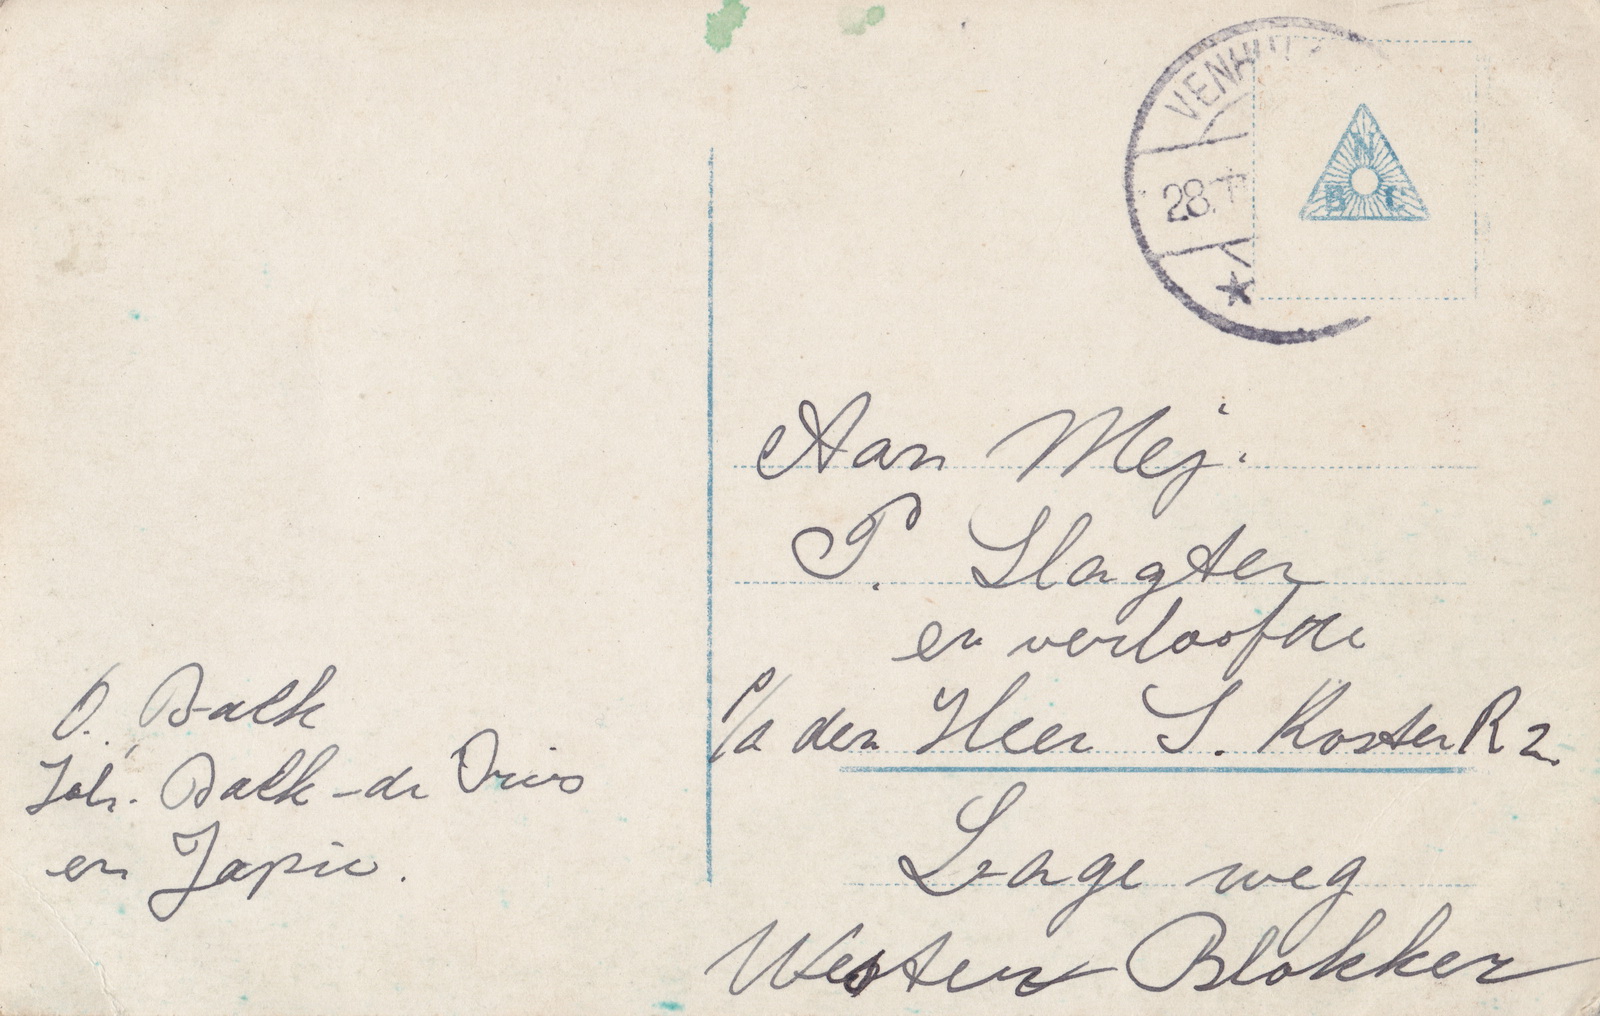 VENHUIZ
28.
N
B C
Aan Mej.
P. Slagter
en verloofde
p/a den Heer S. Koster R 2.
Lage weg
Wester Blokker
O. Balk
Joh. Balk-de Vries
en Japie.